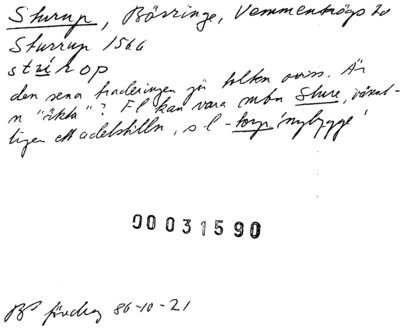 Sturup, Börringe, Vemmenhögs hd
Sturrup 1566
stúrop
den sena traderingen gör tolkn oviss. Är
n "äkta"? Fl kan vara mbn Sture, väsent-
ligen ett adelstilln, s l - torp 'nybygge'
00031590
föredrag 86-10-21